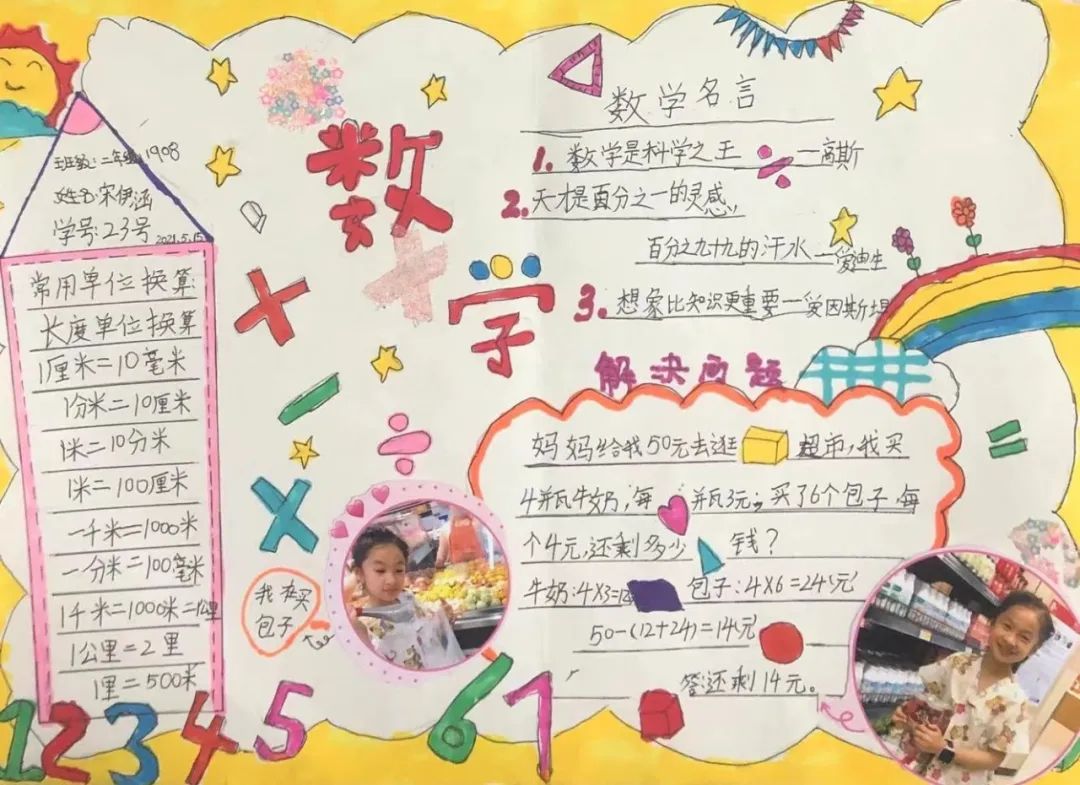 班级：二年级1908
姓名：宋伊涵
学号：23号
2021.5.15
常用单位换算：
长度单位换算
1厘米=10毫米
1分米=10厘米
1米=10分米
1米=100厘米
一千米=1000米
一分米=100毫米
1千米=1000米=1公里
1公里=2里
1里=500米
数学
数学名言
1. 数学是科学之王 ——高斯
2. 天才是百分之一的灵感，
百分之九十九的汗水——爱迪生
3. 想象比知识更重要——爱因斯坦
解决问题
妈妈给我50元去逛超市，我买
4瓶牛奶，每瓶3元；买了6个包子，每
个4元，还剩多少钱？
牛奶：4×3=12 包子：4×6=24(元)
50-(12+24)=14元
答：还剩14元。
我在买
包子
1 2 3 4 5 6 7